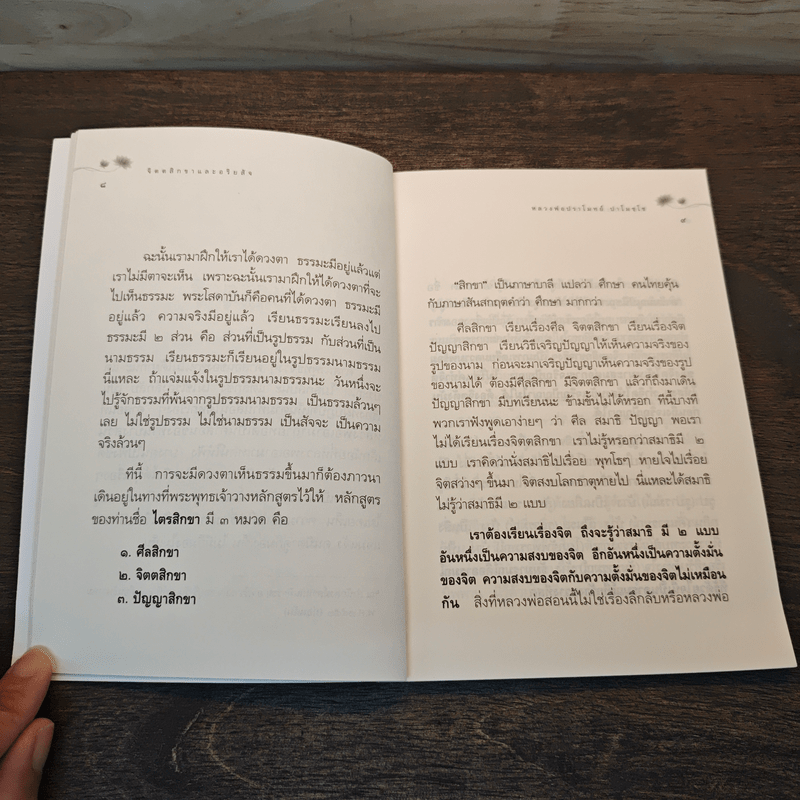 จิตตสิกขาและอริยสัจ
๘
ฉะนั้นเรามาฝึกให้เราได้ดวงตา ธรรมะมีอยู่แล้วแต่
เราไม่มีตาจะเห็น เพราะฉะนั้นเรามาฝึกให้ได้ดวงตาที่จะ
ไปเห็นธรรมะ พระโสดาบันก็คือคนที่ได้ดวงตา ธรรมะมี
อยู่แล้ว ความจริงมีอยู่แล้ว เรียนธรรมะเรียนลงไป
ธรรมะมี ๒ ส่วน คือ ส่วนที่เป็นรูปธรรม กับส่วนที่เป็น
นามธรรม เรียนธรรมะก็เรียนอยู่ในรูปธรรมนามธรรม
นี่แหละ ถ้าแจ่มแจ้งในรูปธรรมนามธรรมนะ วันหนึ่งจะ
ไปรู้จักธรรมที่พ้นจากรูปธรรมนามธรรม เป็นธรรมล้วนๆ
เลย ไม่ใช่รูปธรรม ไม่ใช่นามธรรม เป็นสัจจะ เป็นความ
จริงล้วนๆ
ทีนี้ การจะมีดวงตาเห็นธรรมขึ้นมาก็ต้องภาวนา
เดินอยู่ในทางที่พระพุทธเจ้าวางหลักสูตรไว้ให้ หลักสูตร
ของท่านชื่อ ไตรสิกขา มี ๓ หมวด คือ
๑. ศีลสิกขา
๒. จิตตสิกขา
๓. ปัญญาสิกขา
หลวงพ่อปราโมทย์ ปาโมชฺโช
๙
"สิกขา" เป็นภาษาบาลี แปลว่า ศึกษา คนไทยคุ้น
กับภาษาสันสกฤตคำว่า ศึกษา มากกว่า
ศีลสิกขา เรียนเรื่องศีล จิตตสิกขา เรียนเรื่องจิต
ปัญญาสิกขา เรียนวิธีเจริญปัญญาให้เห็นความจริงของ
รูปของนาม ก่อนจะมาเจริญปัญญาเห็นความจริงของรูป
ของนามได้ ต้องมีศีลสิกขา มีจิตตสิกขา แล้วก็ถึงมาเดิน
ปัญญาสิกขา มีบทเรียนนะ ข้ามขั้นไม่ได้หรอก ทีนี้บางที
พวกเราฟังพูดเอาง่ายๆ ว่า ศีล สมาธิ ปัญญา พอเรา
ไม่ได้เรียนเรื่องจิตตสิกขา เราไม่รู้หรอกว่าสมาธิมี ๒
แบบ เราคิดว่านั่งสมาธิไปเรื่อย พุทโธๆ หายใจไปเรื่อย
จิตสว่างๆ ขึ้นมา จิตสงบโลกธาตุหายไป นี่แหละได้สมาธิ
ไม่รู้ว่าสมาธิมี ๒ แบบ
เราต้องเรียนเรื่องจิต ถึงจะรู้ว่าสมาธิ มี ๒ แบบ
อันหนึ่งเป็นความสงบของจิต อีกอันหนึ่งเป็นความตั้งมั่น
ของจิต ความสงบของจิตกับความตั้งมั่นของจิตไม่เหมือน
กัน สิ่งที่หลวงพ่อสอนนี้ไม่ใช่เรื่องลึกลับหรือหลวงพ่อ